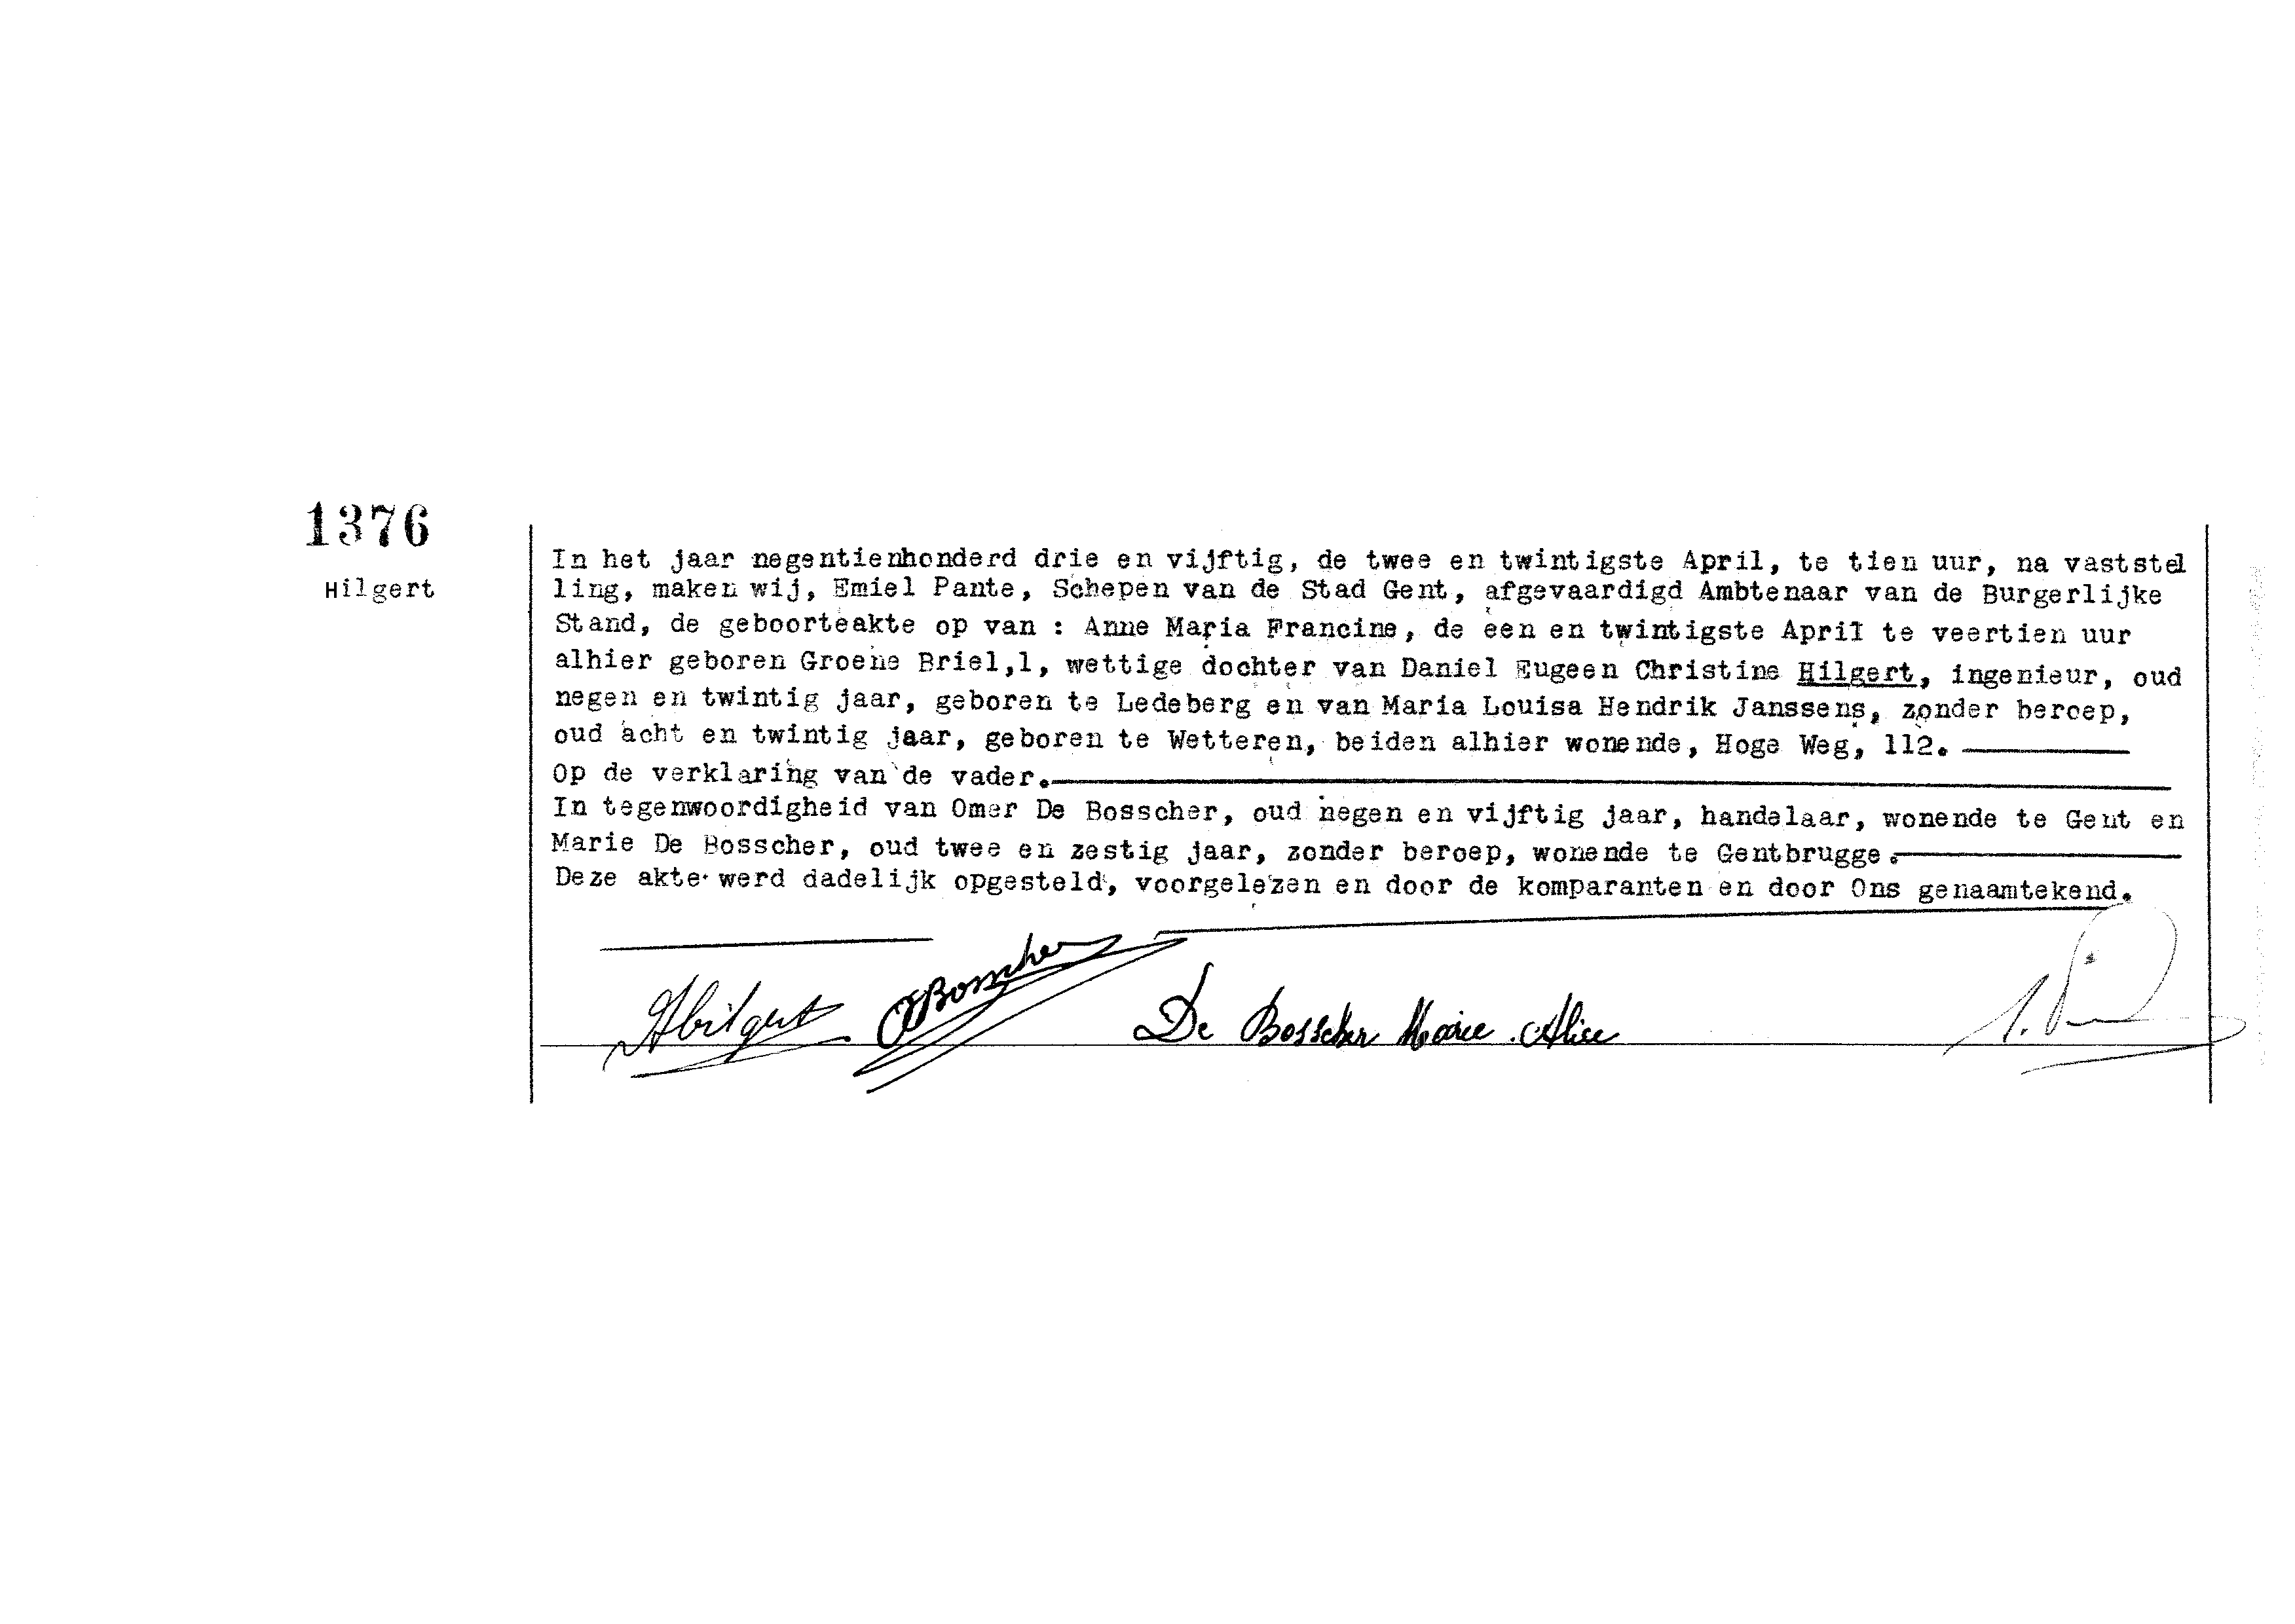 1376
Hilgert
In het jaar negentienhonderd drie en vijftig, de twee en twintigste April, te tien uur, na vaststel
ling, maken wij, Emiel Pante, Schepen van de Stad Gent, afgevaardigd Ambtenaar van de Burgerlijke
Stand, de geboorteakte op van : Anne Maria Francine, de een en twintigste April te veertien uur
alhier geboren Groene Briel,1, wettige dochter van Daniel Eugeen Christine Hilgert, ingenieur, oud
negen en twintig jaar, geboren te Ledeberg en van Maria Louisa Hendrik Janssens, zonder beroep,
oud acht en twintig jaar, geboren te Wetteren, beiden alhier wonende, Hoge Weg, 112.
Op de verklaring van de vader.
In tegenwoordigheid van Omer De Bosscher, oud negen en vijftig jaar, handelaar, wonende te Gent en
Marie De Bosscher, oud twee en zestig jaar, zonder beroep, wonende te Gentbrugge.
Deze akte werd dadelijk opgesteld, voorgelezen en door de komparanten en door Ons genaamtekend.
Hilgert Bosscher De Bosscher Marie Alice